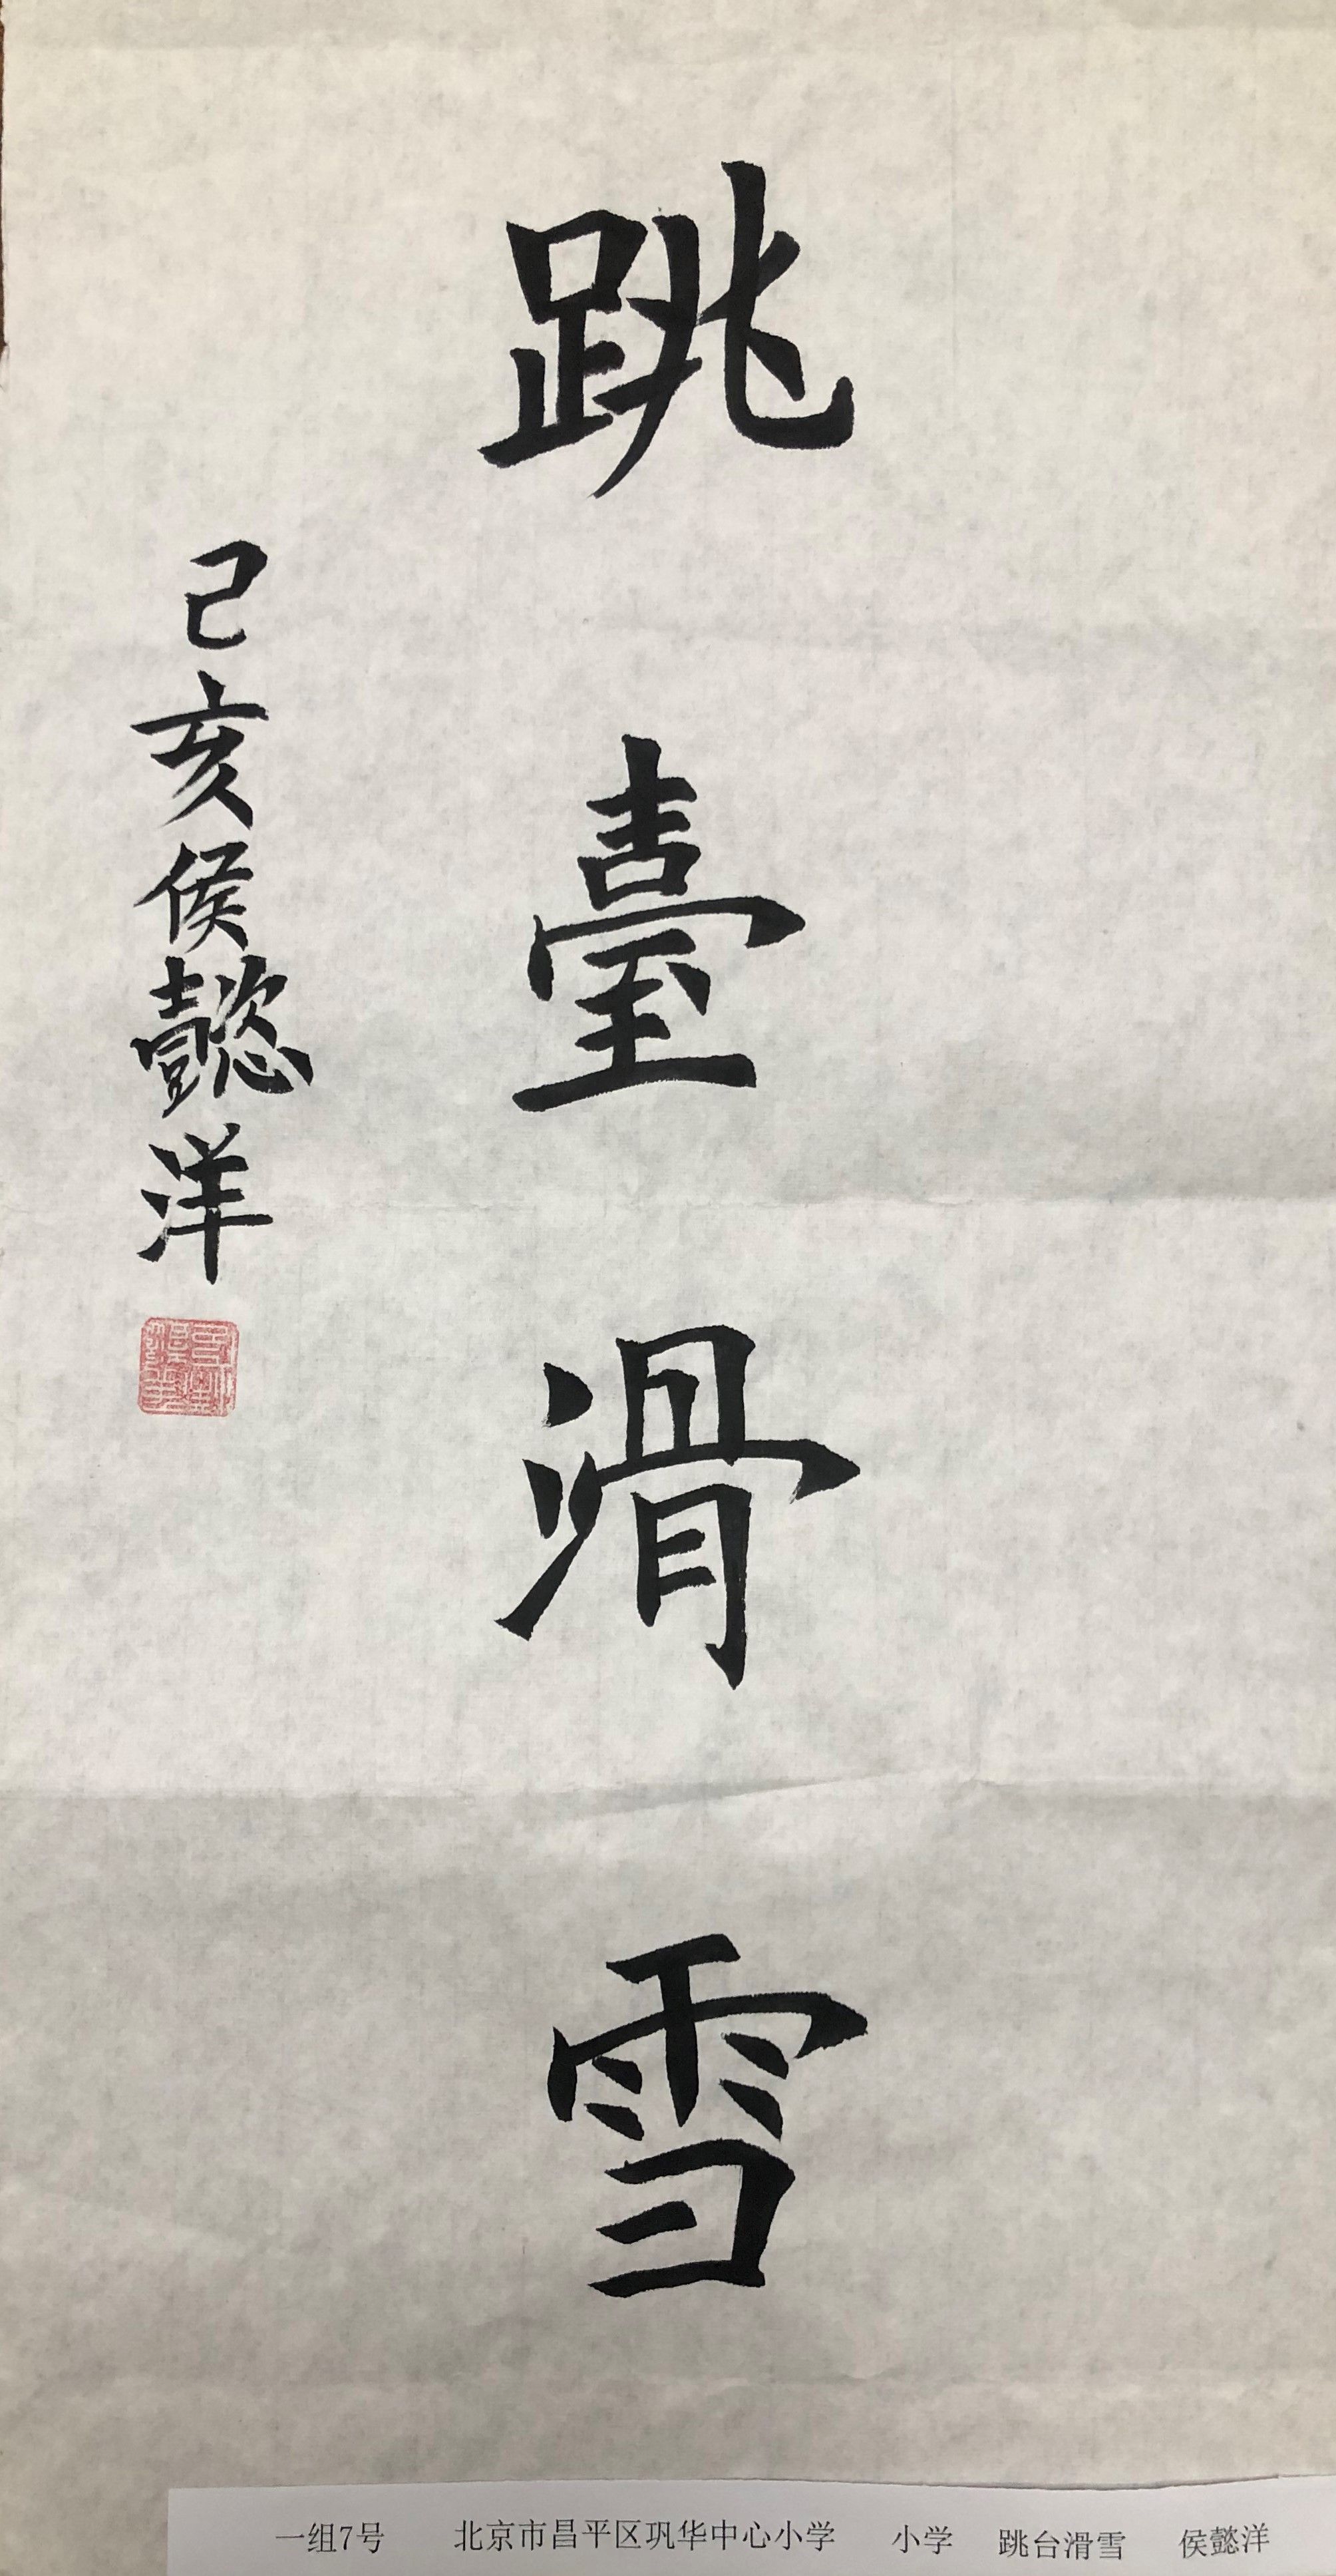 跳臺滑雪
己亥侯懿洋
一组7号 北京市昌平区巩华中心小学 小学 跳台滑雪 侯懿洋